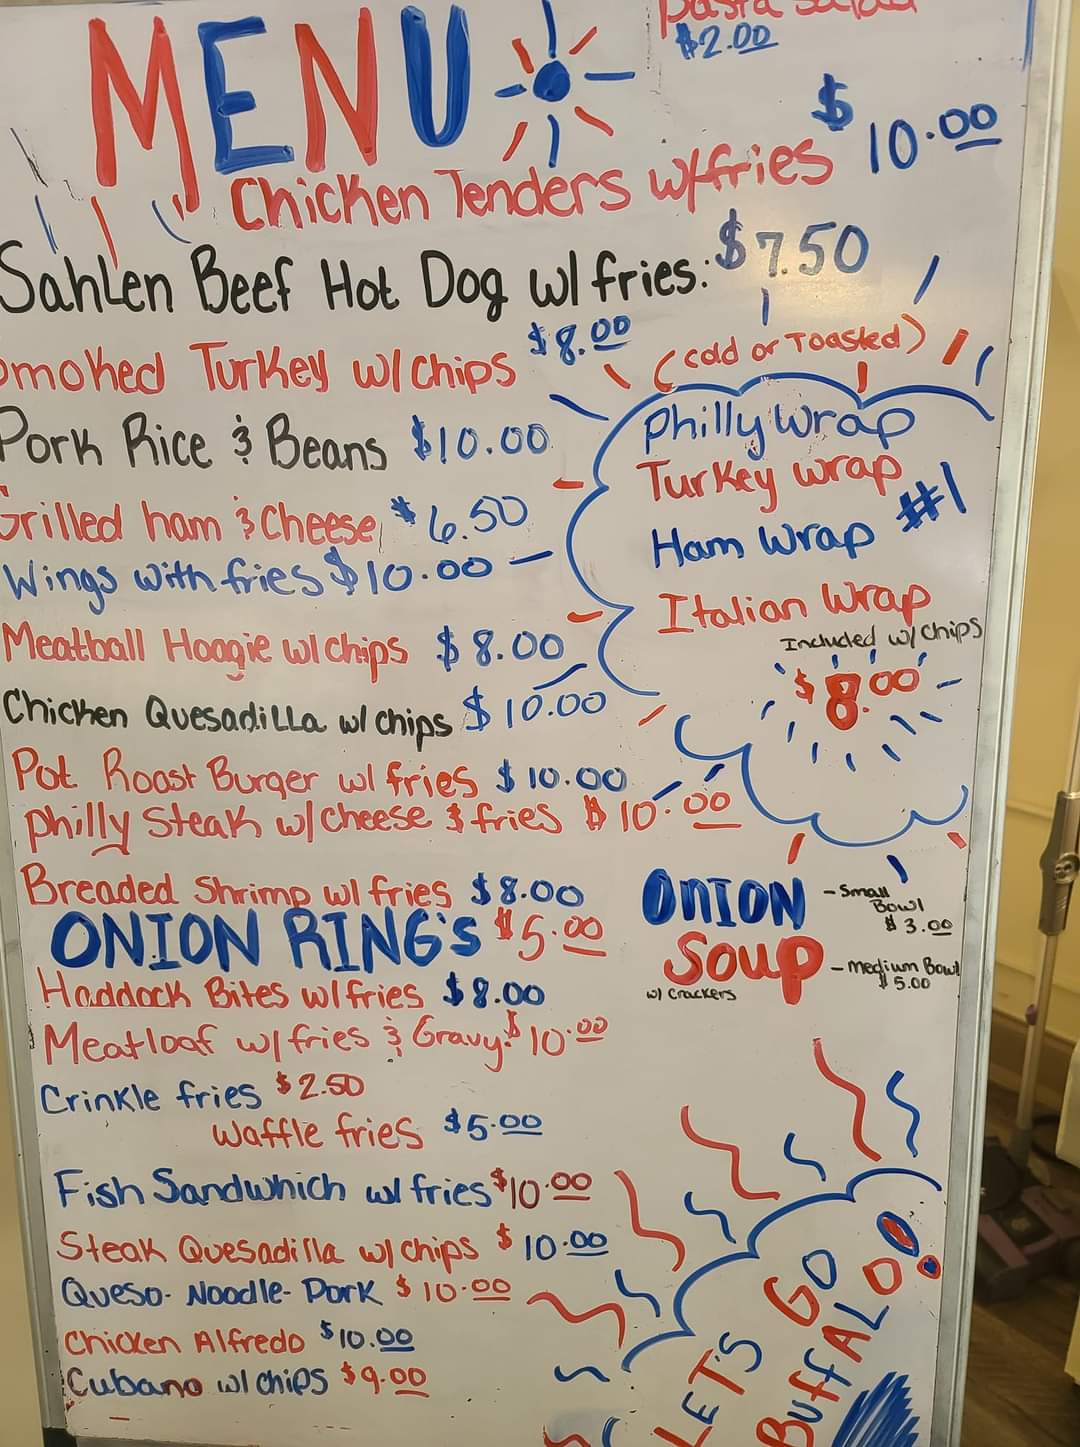 pasta salad
$2.00
MENU
Chicken Tenders w/fries $10.00
Sahlen Beef Hot Dog w/ fries: $7.50
Smoked Turkey w/ chips $8.00
Pork Rice & Beans $10.00
Grilled ham & cheese $6.50
Wings with fries $10.00
Meatball Hoagie w/ chips $8.00
Chicken Quesadilla w/ chips $10.00
Pot Roast Burger w/ fries $10.00
Philly Steak w/ cheese & fries $10.00
Breaded Shrimp w/ fries $8.00
ONION RING's $5.00
Haddock Bites w/ fries $8.00
Meatloaf w/ fries & Gravy: $10.00
Crinkle fries $2.50
Waffle fries $5.00
Fish Sandwhich w/ fries $10.00
Steak Quesadilla w/ chips $10.00
Queso-Noodle-Pork $10.00
Chicken Alfredo $10.00
Cubano w/ chips $9.00
(cold or Toasted)
Philly Wrap
Turkey Wrap
Ham Wrap #1
Italian Wrap
Included w/ chips
$8.00
ONION
Soup
w/ crackers
- Small
Bowl
$3.00
- Medium Bowl
$5.00
LET'S GO
BUFFALO!